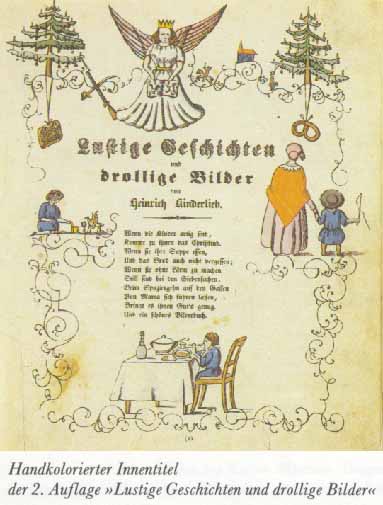 Lustige Geschichten
und
drollige Bilder
von
Heinrich Kinderlieb.
Wenn die Kinder artig sind,
Kommt zu ihnen das Christkind;
Wenn sie ihre Suppe essen,
Und das Brod auch nicht vergessen;
Wenn sie, ohne Lärm zu machen
Still sind bei den Siebensachen,
Beim Spaziergehn auf den Gassen
Von Mama sich führen lassen,
Bringt es ihnen Gut's genug
Und ein schönes Bilderbuch.
Handkolorierter Innentitel
der 2. Auflage »Lustige Geschichten und drollige Bilder«